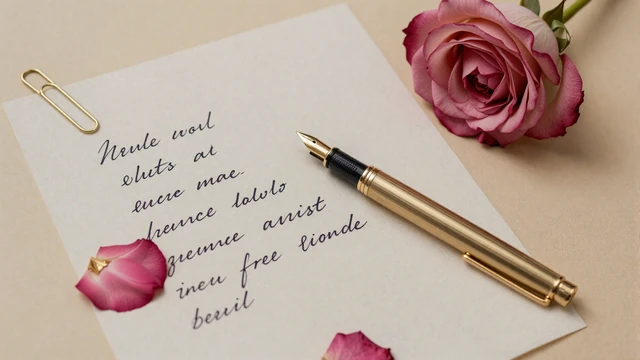 Neule worl
eluts at
eucre mae.
freunce lalolo
greunce anist
ineu free lionde
beril